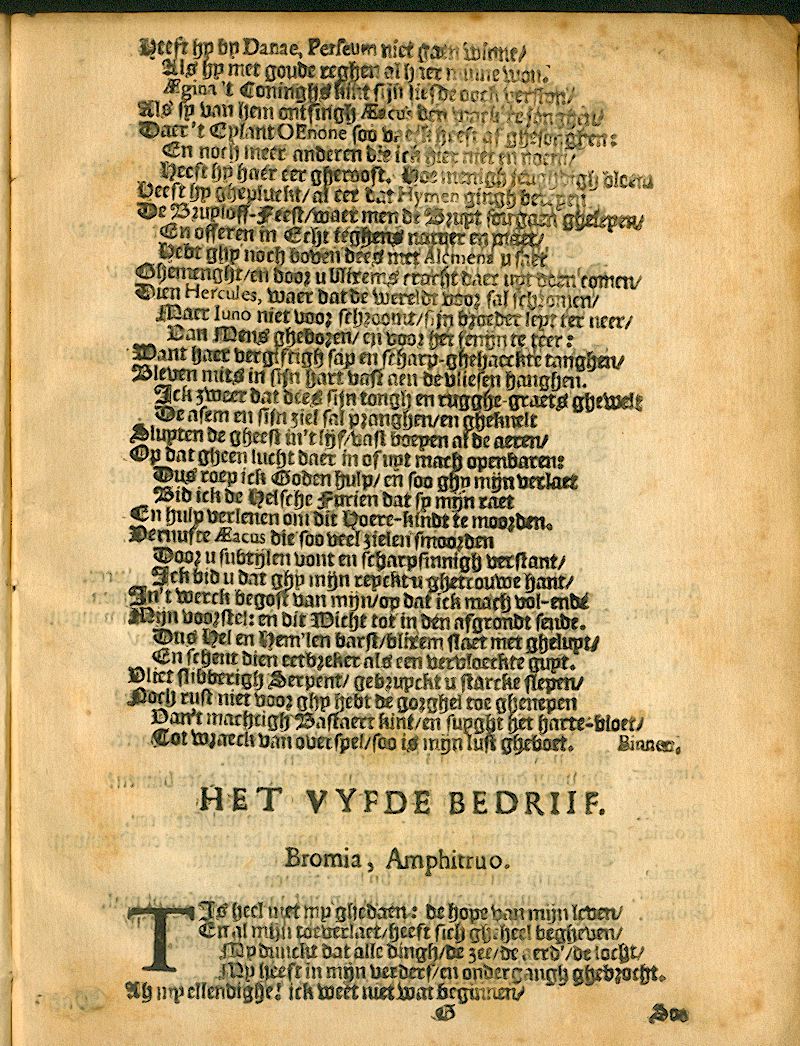 Heeft hy by Danae, Perseum niet gaen winne/
Als hy met goude reghen al haer minne won.
Ægina 't Coninghs kint sijn liefde ooch verston/
Als sy van hem ontfingh Æacus den
Daer 't Eylant OEnone soo heeft af ghesonghen:
En noch meer anderen die ick hier niet en noem/
Heeft hy haer eer gherooft. Hoe menigh jeughdigh bloem
Heeft hy ghepluckt/ al eer dat Hymen gingh
De Bruyloff-Feest/ waer men de Bruyt sou gaen
En offeren in Echt teghens natuer en
Hebt ghy noch boven dees met Alcmena u saet
Ghemenght/ en door u blixems cracht daer uyt doen comen/
Dien Hercules, waer dat de wereldt voor sal schromen/
Maer Iuno niet voor schroomt/ sijn broeder leyt ter neer/
Van Mens gheboren/ en voor het fenijn te teer:
Want haer vergiftigh sap en scharp-ghehaeckte tanghen/
Bleven mits in sijn hart vast aen de vliesen hanghen.
Ick zweer dat dees sijn tongh en rugghe-graets ghewelt
De asem en sijn ziel sal pranghen/ en gheknelt
Sluyten de gheest in't lijf/ vast boeyen al de aeren/
Op dat gheen lucht daer in of uyt mach openbaren:
Dus roep ick Goden hulp/ en soo ghy mijn verlaet
Bid ick de Helsche Furien dat sy mijn raet
En hulp verlenen om dit Hoere-kindt te moorden.
Vernufte Æacus die soo veel zielen smoorden
Door u subtijlen vont en scharpsinnigh verstant/
Ick bid u dat ghy mijn reyckt u ghetrouwe hant/
In't werck begost van mijn/ op dat ick mach vol-ende
Mijn voorstel: en dit Wicht tot in den afgrondt sende.
Dus Hel en Hem'len barst/ blixem slaet met gheluyt/
En schent dien eetbreker als een vervloeckte guyt.
Vliet slibberigh Serpent/ gebruyckt u starcke slepen/
Noch rust niet voor ghy hebt de gorghel toe ghenepen
Van't machtigh Bastaert kint/ en suyght het harte-bloet/
Tot wraeck van overspel/ soo is mijn lust gheboet. Binnen.
HET VYFDE BEDRIIF.
Bromia, Amphitruo.
T'Is heel met my ghedaen: de hope van mijn leven/
En al mijn toeverlaet/ heeft sich gheheel begheven/
My dunckt dat alle dingh/ de zee/ de aerd'/ de locht/
My heeft in mijn verderf/ en ondergangh ghebrocht.
Ah my ellendighe! ick weet niet wat beginnen/
G Soo